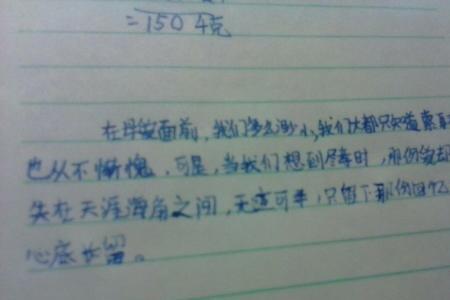 =1504克
在母爱面前，我们多么渺小，我们大都只知道索取
也从不惭愧，可是，当我们想到尽孝时，那份爱却
失在天涯海角之间，无迹可寻，只留下那份回忆
心底长留。